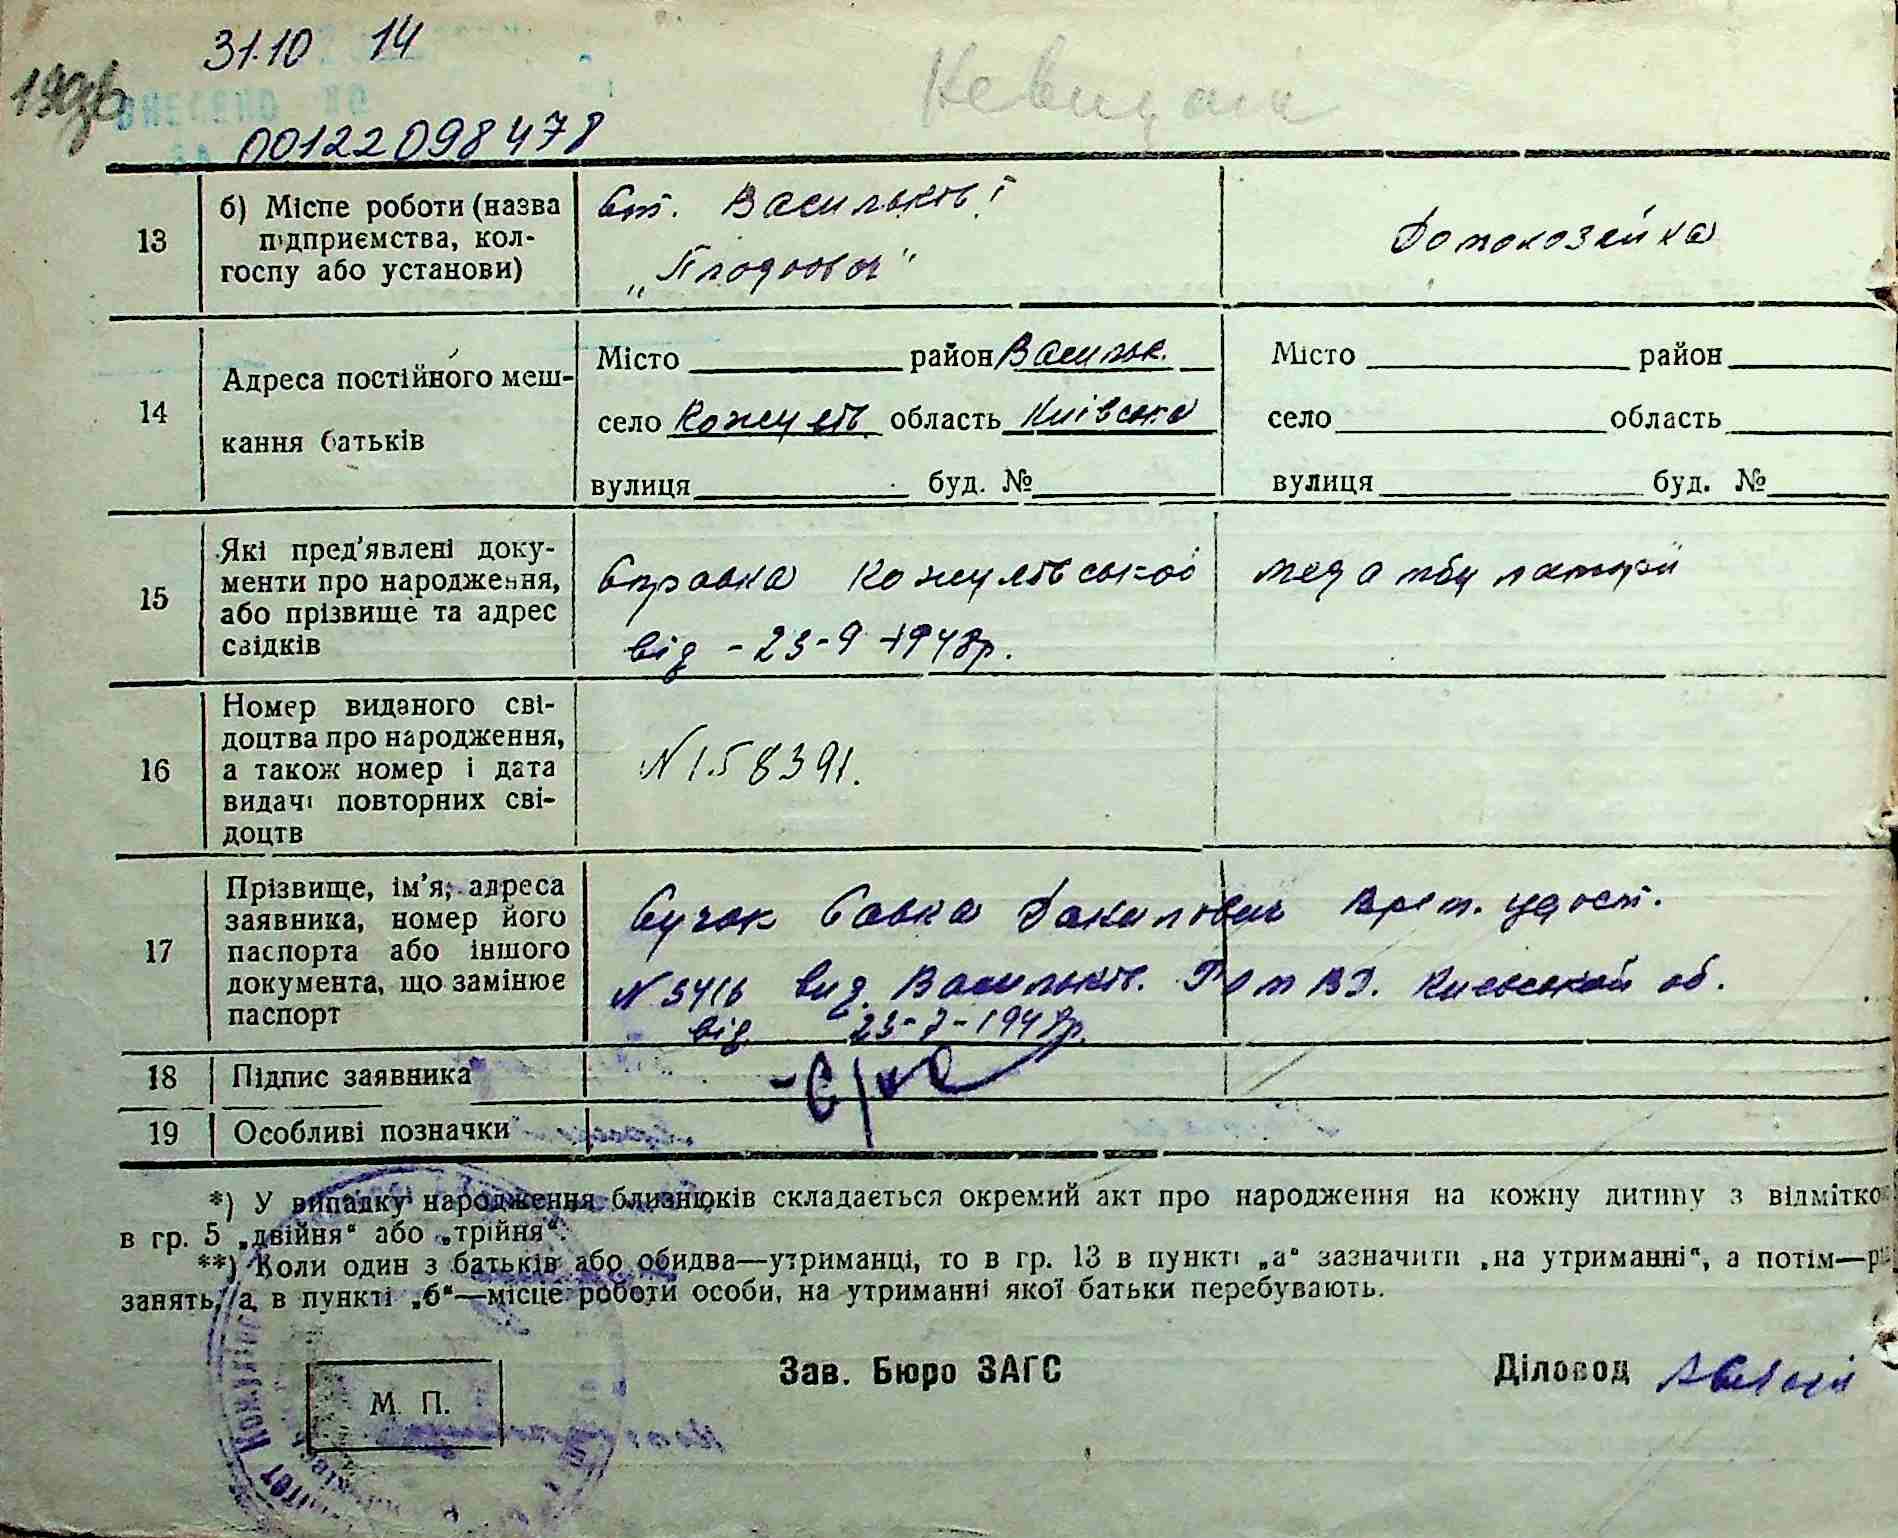 31.10 14
00122098478
13
б) Місце роботи (назва
підприємства, кол-
госпу або установи)
ст. Васильків I
„Плодоовоч"
Домохозяйка
14
Адреса постійного меш-
кання батьків
Місто район Васильк.
село Кожухів. область Київська
вулиця буд. №
Місто район
село область
вулиця буд. №
15
Які пред'явлені доку-
менти про народження,
або прізвище та адрес
свідків
Справка Кожухівської мед амбулаторії
від - 23-9-1948р.
16
Номер виданого сві-
доцтва про народження,
а також номер і дата
видачі повторних сві-
доцтв
N 158391.
17
Прізвище, ім'я, адреса
заявника, номер його
паспорта або іншого
документа, що замінює
паспорт
Сучок Савка Данилович врем. удост.
вид. Васильків. Київської об.
від 23-7-1948р.
18
Підпис заявника
19
Особливі позначки
*) У випадку народження близнюків складається окремий акт про народження на кожну дитину з відмітко
в гр. 5 „двійня" або „трійня".
**) Коли один з батьків або обидва—утриманці, то в гр. 13 в пункті „а" зазначити „на утриманні", а потім—р
занять, а в пункті „б"—місце роботи особи, на утриманні якої батьки перебувають.
Зав. Бюро ЗАГС
Діловод
М. П.